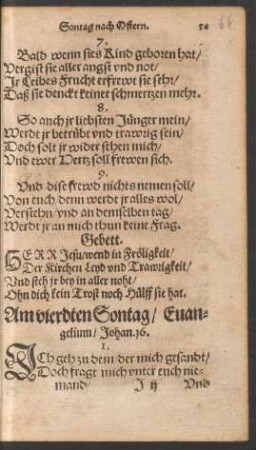 Sontag nach Ostern. 54
66
7.
Bald wenn sies Kind geboren hat/
Vergist sie aller angst vnd not/
Jr Leibes Frucht erfrewt sie sehr/
Daß sie denckt keiner schmertzen mehr.
8.
So auch jr liebsten Jünger mein/
Werdt jr betrübt vnd trawrig sein/
Doch solt jr wider sehen mich/
Vnd ewer Hertz soll frewen sich.
9.
Vnd dise frewd nichts nemen soll/
Von euch/ denn werdt jr alles wol/
Verstehn/ vnd an demselben tag/
Werdt jr an mich thun keine frag.
Gebett.
HERR Jesu/ wend in Fröligkeit/
Der Kirchen Leyd vnd Trawrigkeit/
Vnd steh jr bey in aller noht/
Ohn dich kein Trost noch Hülff sie hat.
Am vierdten Sontag/ Euan-
gelium/ Johan. 16.
1.
JCh geh zu dem/ der mich gesandt/
Doch fragt mich vnter euch nie-
mand/ J ij Vnd